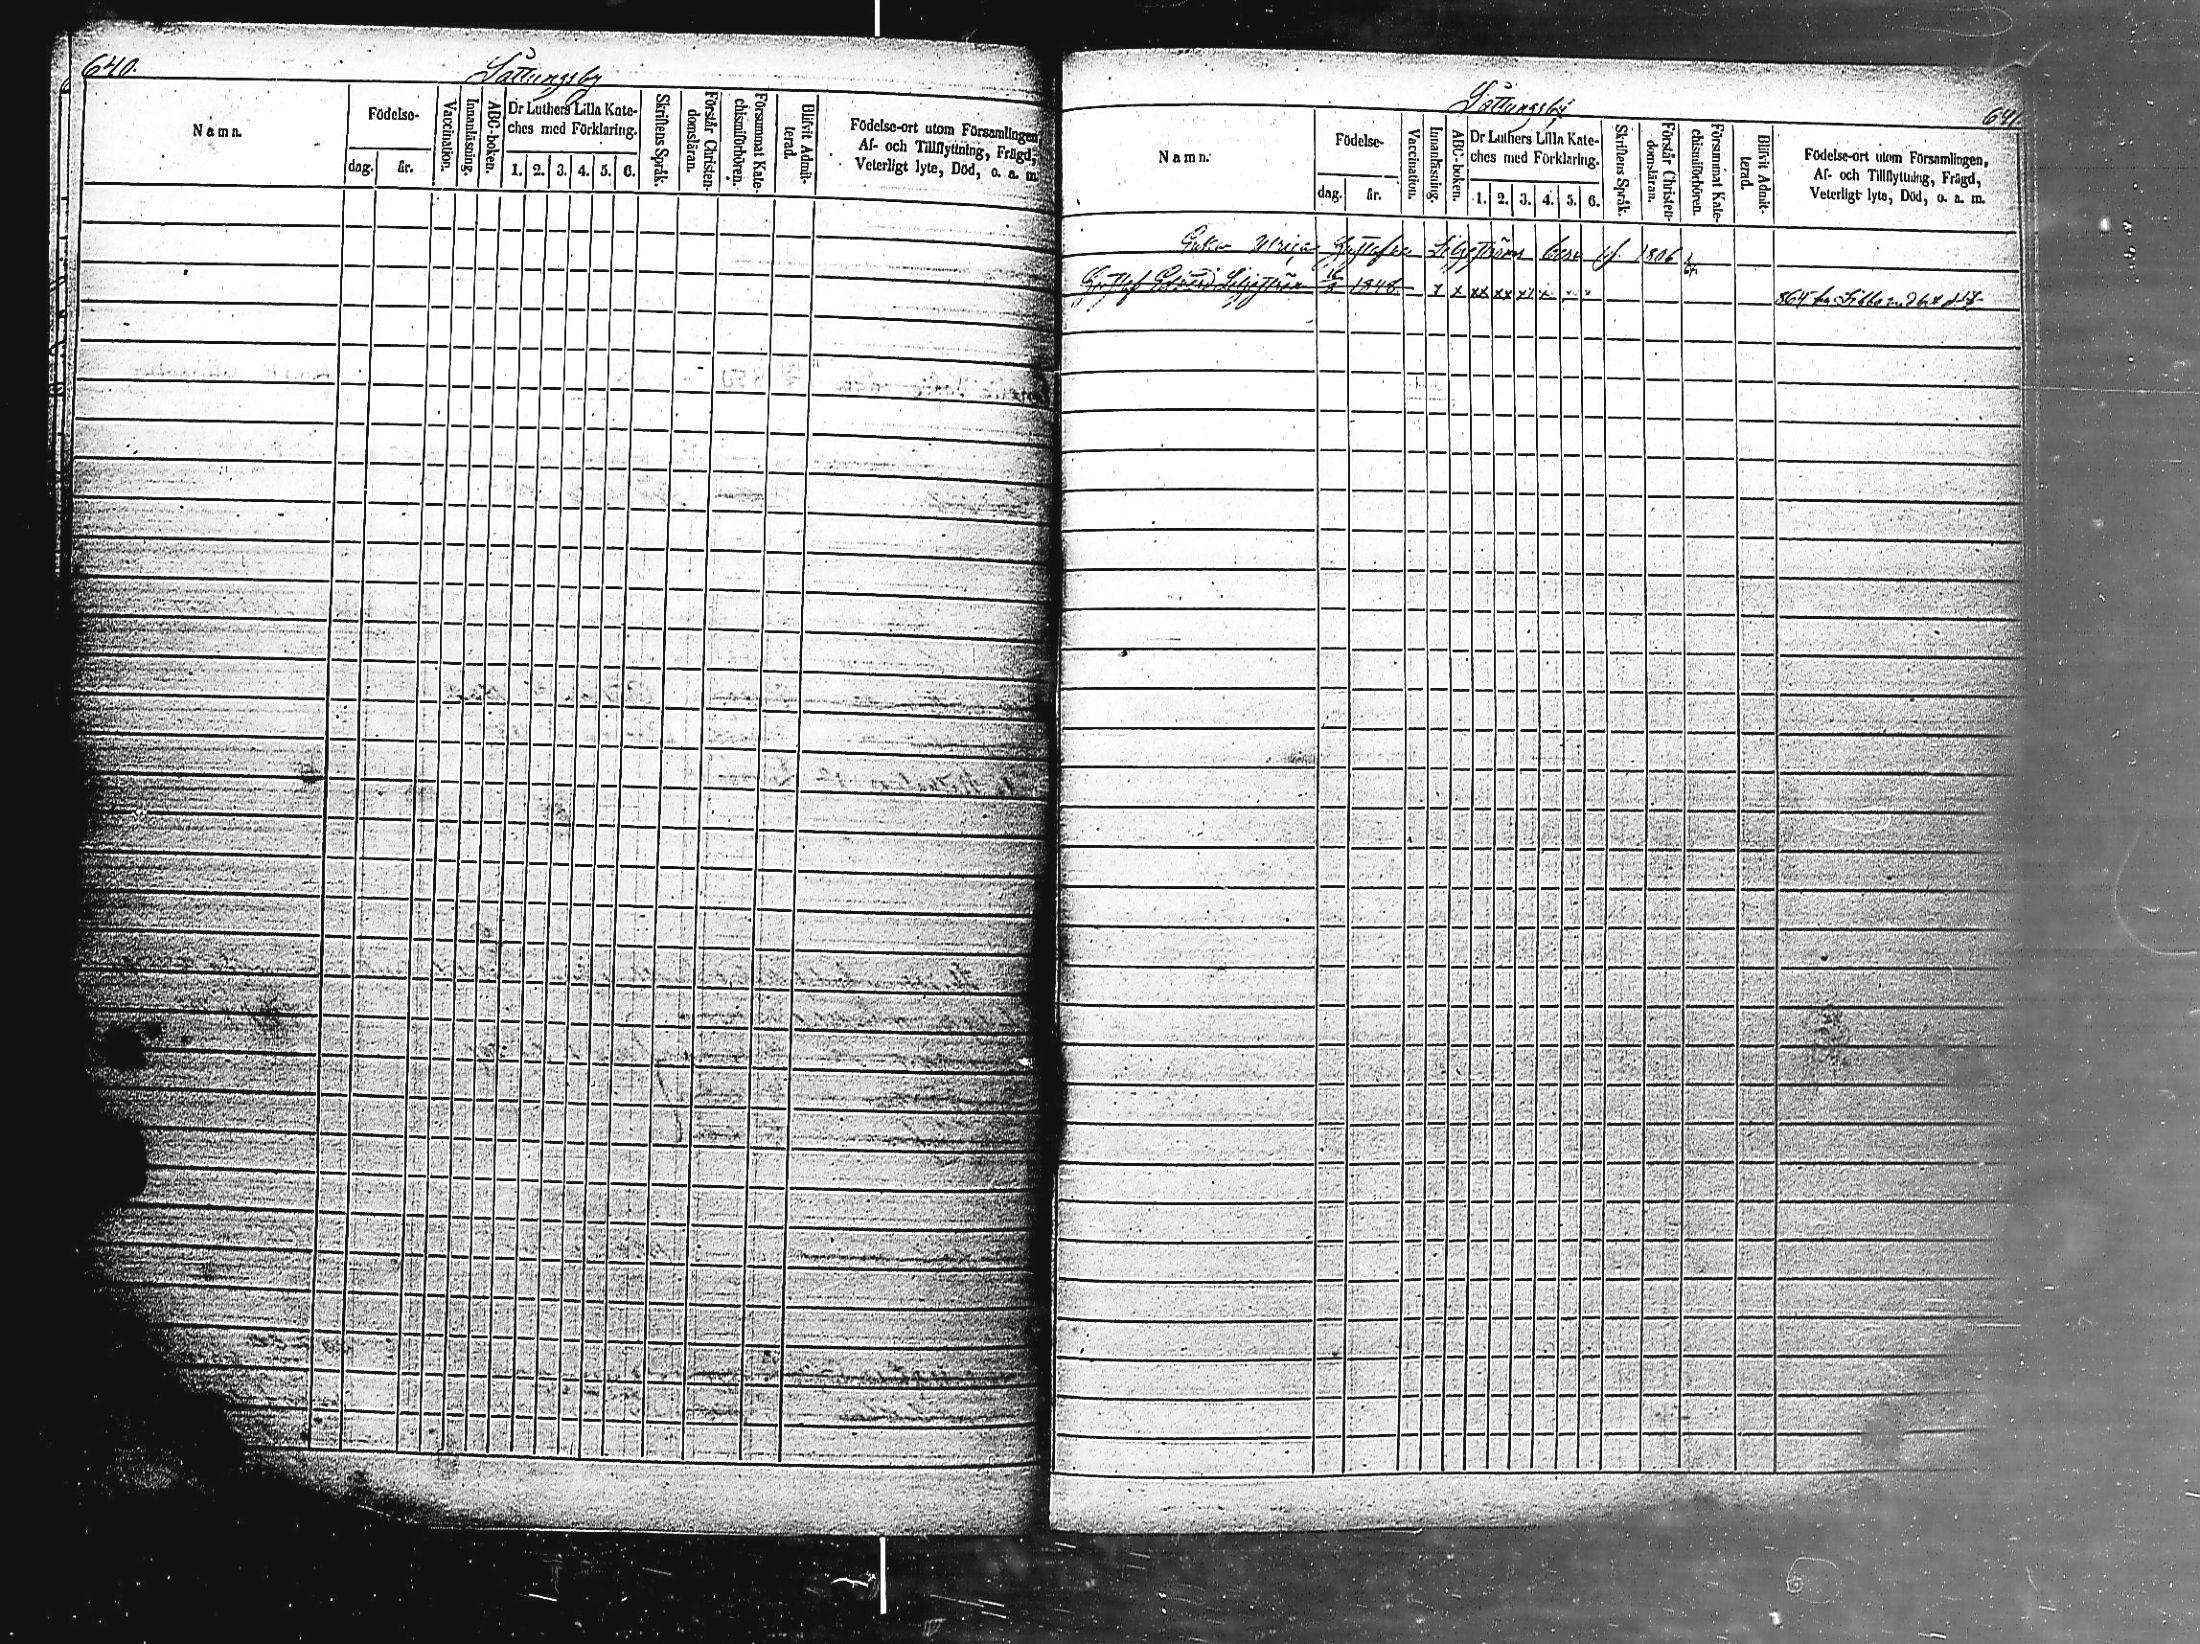 640.
Såttungsby
Namn.
Födelse-
dag.
år.
Vaccination.
Innanläsning.
ABC-boken.
Dr Luthers Lilla Kate-
ches med Förklaring.
1. 2. 3. 4. 5. 6.
Skriftens Språk.
Förstår Christen-
domsläran.
Försummat Kate-
chismiförhören.
Blifvit Admit-
terad.
Födelse-ort utom Församlingen,
Af- och Tillflyttning, Frägd,
Veterligt lyte, Död, o. a. m.
Såttungsby
641.
Namn.
Födelse-
dag.
år.
Vaccination.
Innanläsning.
ABC-boken.
Dr Luthers Lilla Kate-
ches med Förklaring.
1. 2. 3. 4. 5. 6.
Skriftens Språk.
Förstår Christen-
domsläran.
Försummat Kate-
chismiförhören.
Blifvit Admit-
terad.
Födelse-ort utom Församlingen,
Af- och Tillflyttning, Frägd,
Veterligt lyte, Död, o. a. m.
Enkan Ulrica Gustafva Liljeström 1806
Gustaf Edvard Liljeström 1848 x x xx xx x1 x